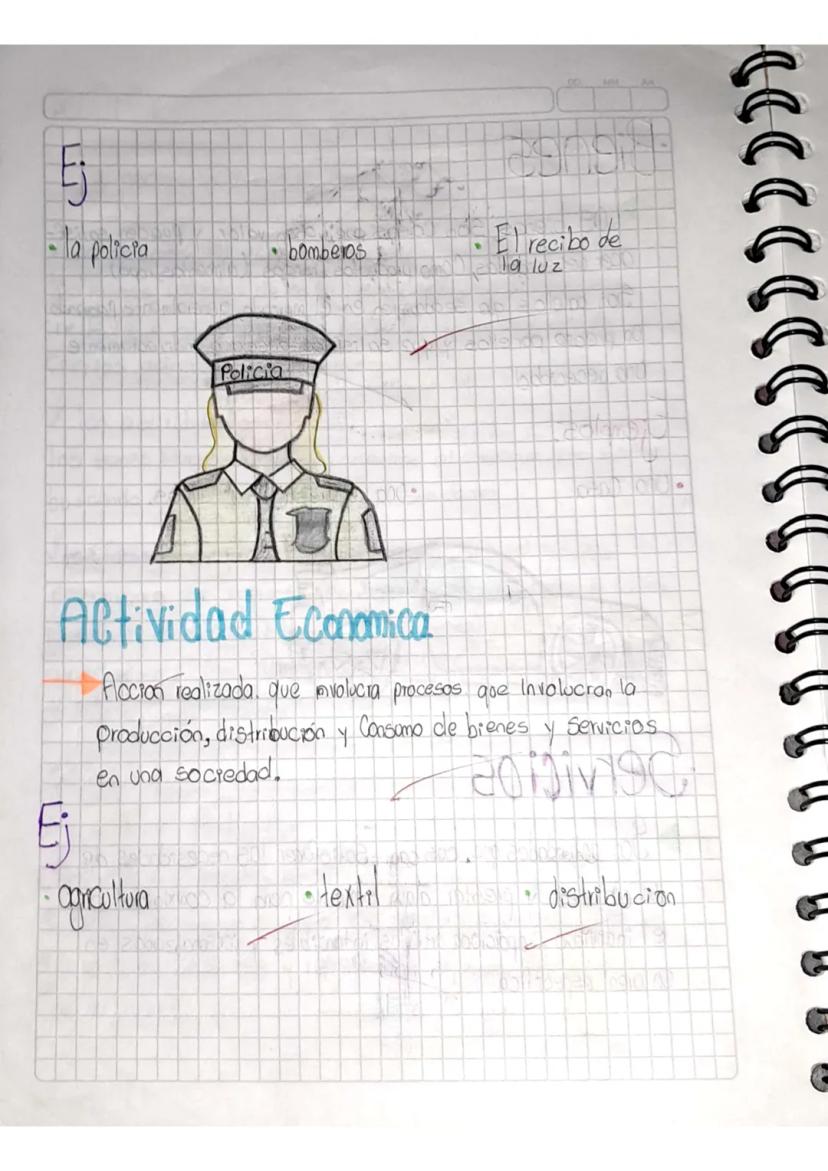 DD MM AA
Ej
• la policia • bomberos • El recibo de
la luz
Policia
Actividad Economica
Accion realizada que involucra procesos que Involucran la
producción, distribución y Consumo de bienes y servicios
en una sociedad.
Ej
• agricultura • textil • distribucion